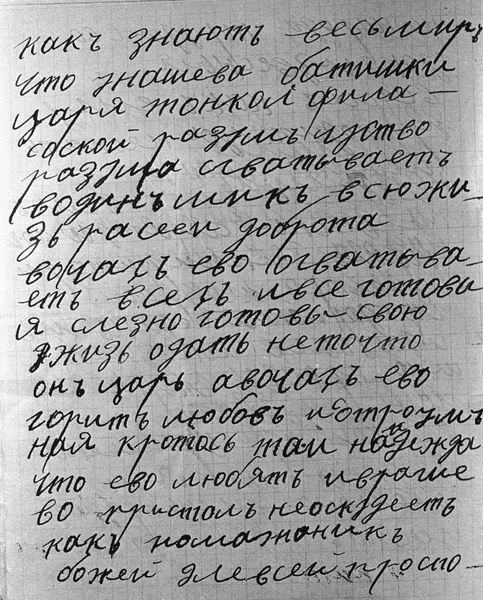 какъ знаютъ весь миръ
что унашева батишки
царя тонкол фила —
соской разумъ чуство
разума огватываетъ
водинъ микъ всю жи
зь расеи доброта
вочахъ ево огватыва
етъ всехъ ивсе готовы
я слезно готовы свою
жизь одать неточто
онъ царь а вочахъ ево
горитъ любовь
ная кротось таи надежда
что ево любятъ ивраги
во пристолъ неоскудеетъ
какъ помазоникъ
божей длевсей просто —